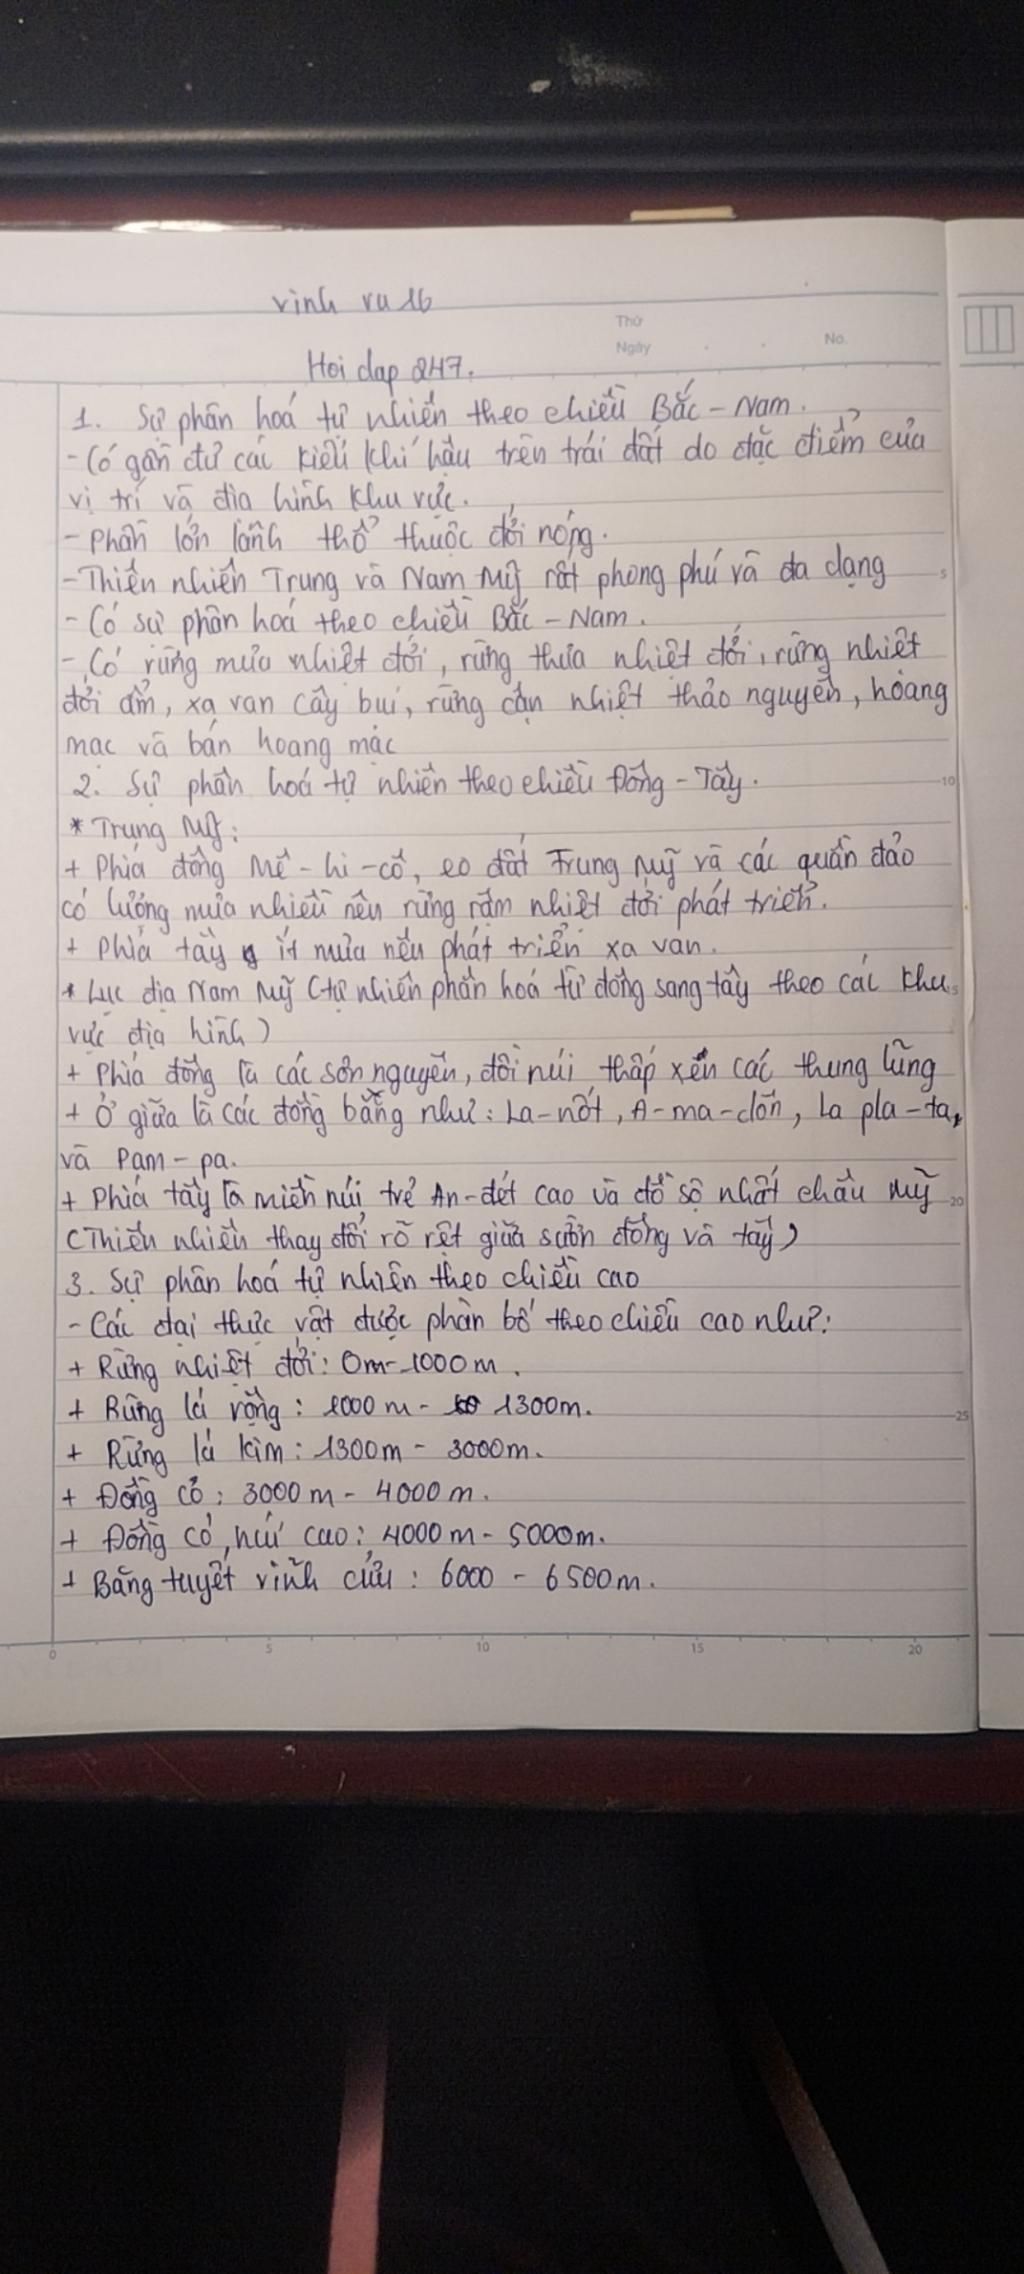 vinh vu 16
Thứ
Ngày
No.
Hoi dap 247.
1. Sự phân hoá tự nhiên theo chiều Bắc - Nam.
- Có gần đủ các kiểu khí hậu trên trái đất do đặc điểm của
vị trí và địa hình khu vực.
- Phần lớn lãnh thổ thuộc đới nóng.
- Thiên nhiên Trung và Nam Mỹ rất phong phú và đa dạng
5
- Có sự phân hoá theo chiều Bắc - Nam.
- Có rừng mưa nhiệt đới, rừng thưa nhiệt đới, rừng nhiệt
đới ẩm, xa van cây bụi, rừng cận nhiệt thảo nguyên, hoang
mạc và bán hoang mạc
2. Sự phân hoá tự nhiên theo chiều Đông - Tây.
10
* Trung Mỹ:
+ Phía đông Mê - hi - cô, eo đất Trung Mỹ và các quần đảo
có lượng mưa nhiều nên rừng rậm nhiệt đới phát triển.
+ Phía tây ít mưa nên phát triển xa van.
* Lục địa Nam Mỹ (tự nhiên phân hoá từ đông sang tây theo các khu
vực địa hình)
+ Phía đông là các sơn nguyên, đồi núi thấp xen các thung lũng
+ Ở giữa là các đồng bằng như: La-nốt, A-ma-dôn, La pla-ta,
và Pam - pa.
+ Phía tây là miền núi trẻ An-đét cao và đồ sộ nhất châu Mỹ
20
(Thiên nhiên thay đổi rõ rệt giữa sườn đông và tây)
3. Sự phân hoá tự nhiên theo chiều cao
- Các đai thực vật được phân bố theo chiều cao như:
+ Rừng nhiệt đới: 0m - 1000m.
+ Rừng lá rộng: 1000m - 1300m.
25
+ Rừng lá kim: 1300m - 3000m.
+ Đồng cỏ: 3000m - 4000m.
+ Đồng cỏ, núi cao: 4000m - 5000m.
+ Băng tuyết vĩnh cửu: 6000 - 6500m.
0 5 10 15 20